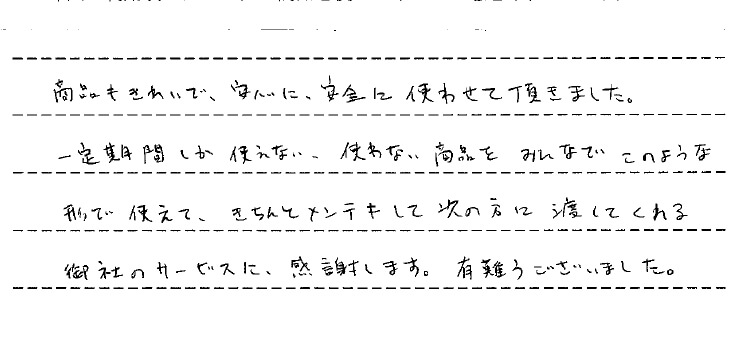 商品もきれいで、安心に、安全に使わせて頂きました。
一定期間しか使えない、使わない商品をみんなでこのような
形で使えて、きちんとメンテキして次の方に渡してくれる
御社のサービスに、感謝します。有難うございました。